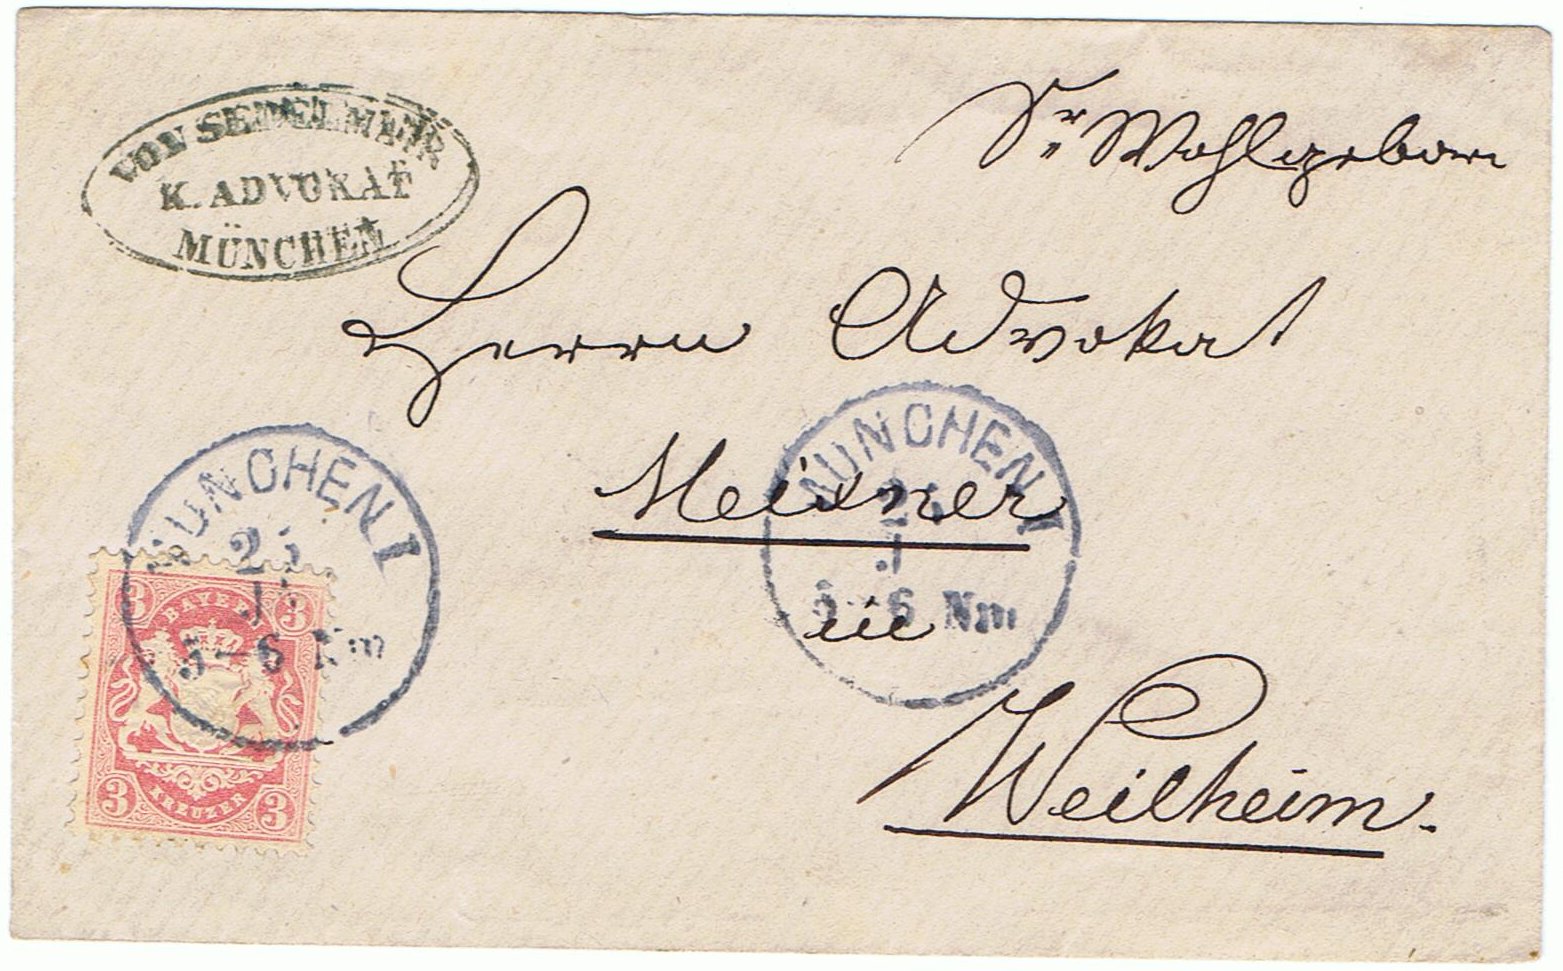 VON SEDELMEIR
K. ADVOKAT
MÜNCHEN
Sr Wohlgeboren
Herrn Advokat
Meixner
in
Weilheim.
MÜNCHEN I
5-6 Nm
MÜNCHEN I
5-6 Nm
3 BAYERN 3
3 KREUZER 3